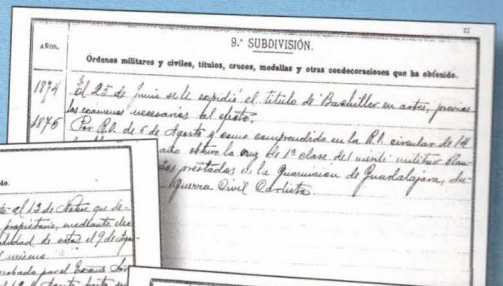 9.ª SUBDIVISIÓN.
AÑOS.
Órdenes militares y civiles, títulos, cruces, medallas y otras condecoraciones que ha obtenido.
1874 El 25 de Junio se le expidió el título de Bachiller en artes, previos
los exámenes necesarios al efecto.
1876 Por R.O. de 6 de Agosto y como comprendido en la R.O. circular de 14
año obtuvo la cruz de 1ª clase del mérito militar
prestados en la Guarnición de Guadalajara, du-
Guerra Civil Carlista.
el 12 de
propietario, mediante
de estas el 9 de
mismo
aprobada por el